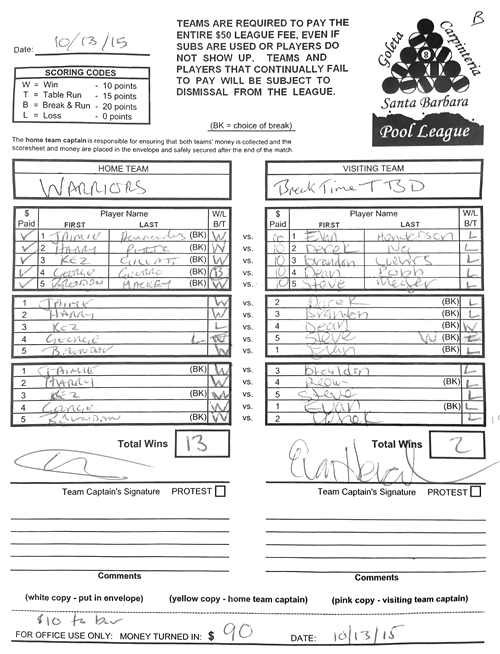 B
TEAMS ARE REQUIRED TO PAY THE
ENTIRE $50 LEAGUE FEE, EVEN IF
SUBS ARE USED OR PLAYERS DO
NOT SHOW UP. TEAMS AND
PLAYERS THAT CONTINUALLY FAIL
TO PAY WILL BE SUBJECT TO
DISMISSAL FROM THE LEAGUE.
Date: 10/13/15
SCORING CODES
W = Win - 10 points
T = Table Run - 15 points
B = Break & Run - 20 points
L = Loss - 0 points
Goleta Carpinteria
8
Santa Barbara
Pool League
(BK = choice of break)
The home team captain is responsible for ensuring that both teams' money is collected and the
scoresheet and money are placed in the envelope and safely secured after the end of the match.
HOME TEAM VISITING TEAM
WARRIORS BreakTime TBD
$ Paid Player Name FIRST LAST W/L B/T $ Paid Player Name FIRST LAST W/L B/T
✓ 1 JAIMIE (BK) W vs. 10 1 Evan Henderson L
✓ 2 HARRY (BK) W vs. 10 2 Derek Ng L
✓ 3 KEZ (BK) W vs. 10 3 Brandon L
✓ 4 GEORGE (BK) B vs. 10 4 Dean L
✓ 5 BRENDAN MACKEY (BK) W vs. 10 5 Steve L
1 JAIMIE W vs. 2 Derek (BK) L
2 HARRY W vs. 3 Brandon (BK) L
3 KEZ L vs. 4 Dean (BK) W
4 GEORGE L W vs. 5 Steve W (BK)
5 BRENDAN W vs. 1 Evan (BK) L
1 JAIMIE (BK) W vs. 3 Brandon L
2 HARRY W vs. 4 Dean (BK) L
3 KEZ (BK) W vs. 5 Steve L
4 GEORGE W vs. 1 Evan (BK) L
5 BRENDAN (BK) W vs. 2 Derek L
Total Wins 13 Total Wins 2
Team Captain's Signature PROTEST Team Captain's Signature PROTEST
Comments Comments
(white copy - put in envelope) (yellow copy - home team captain) (pink copy - visiting team captain)
$10 to bar
FOR OFFICE USE ONLY: MONEY TURNED IN: $ 90 DATE: 10/13/15